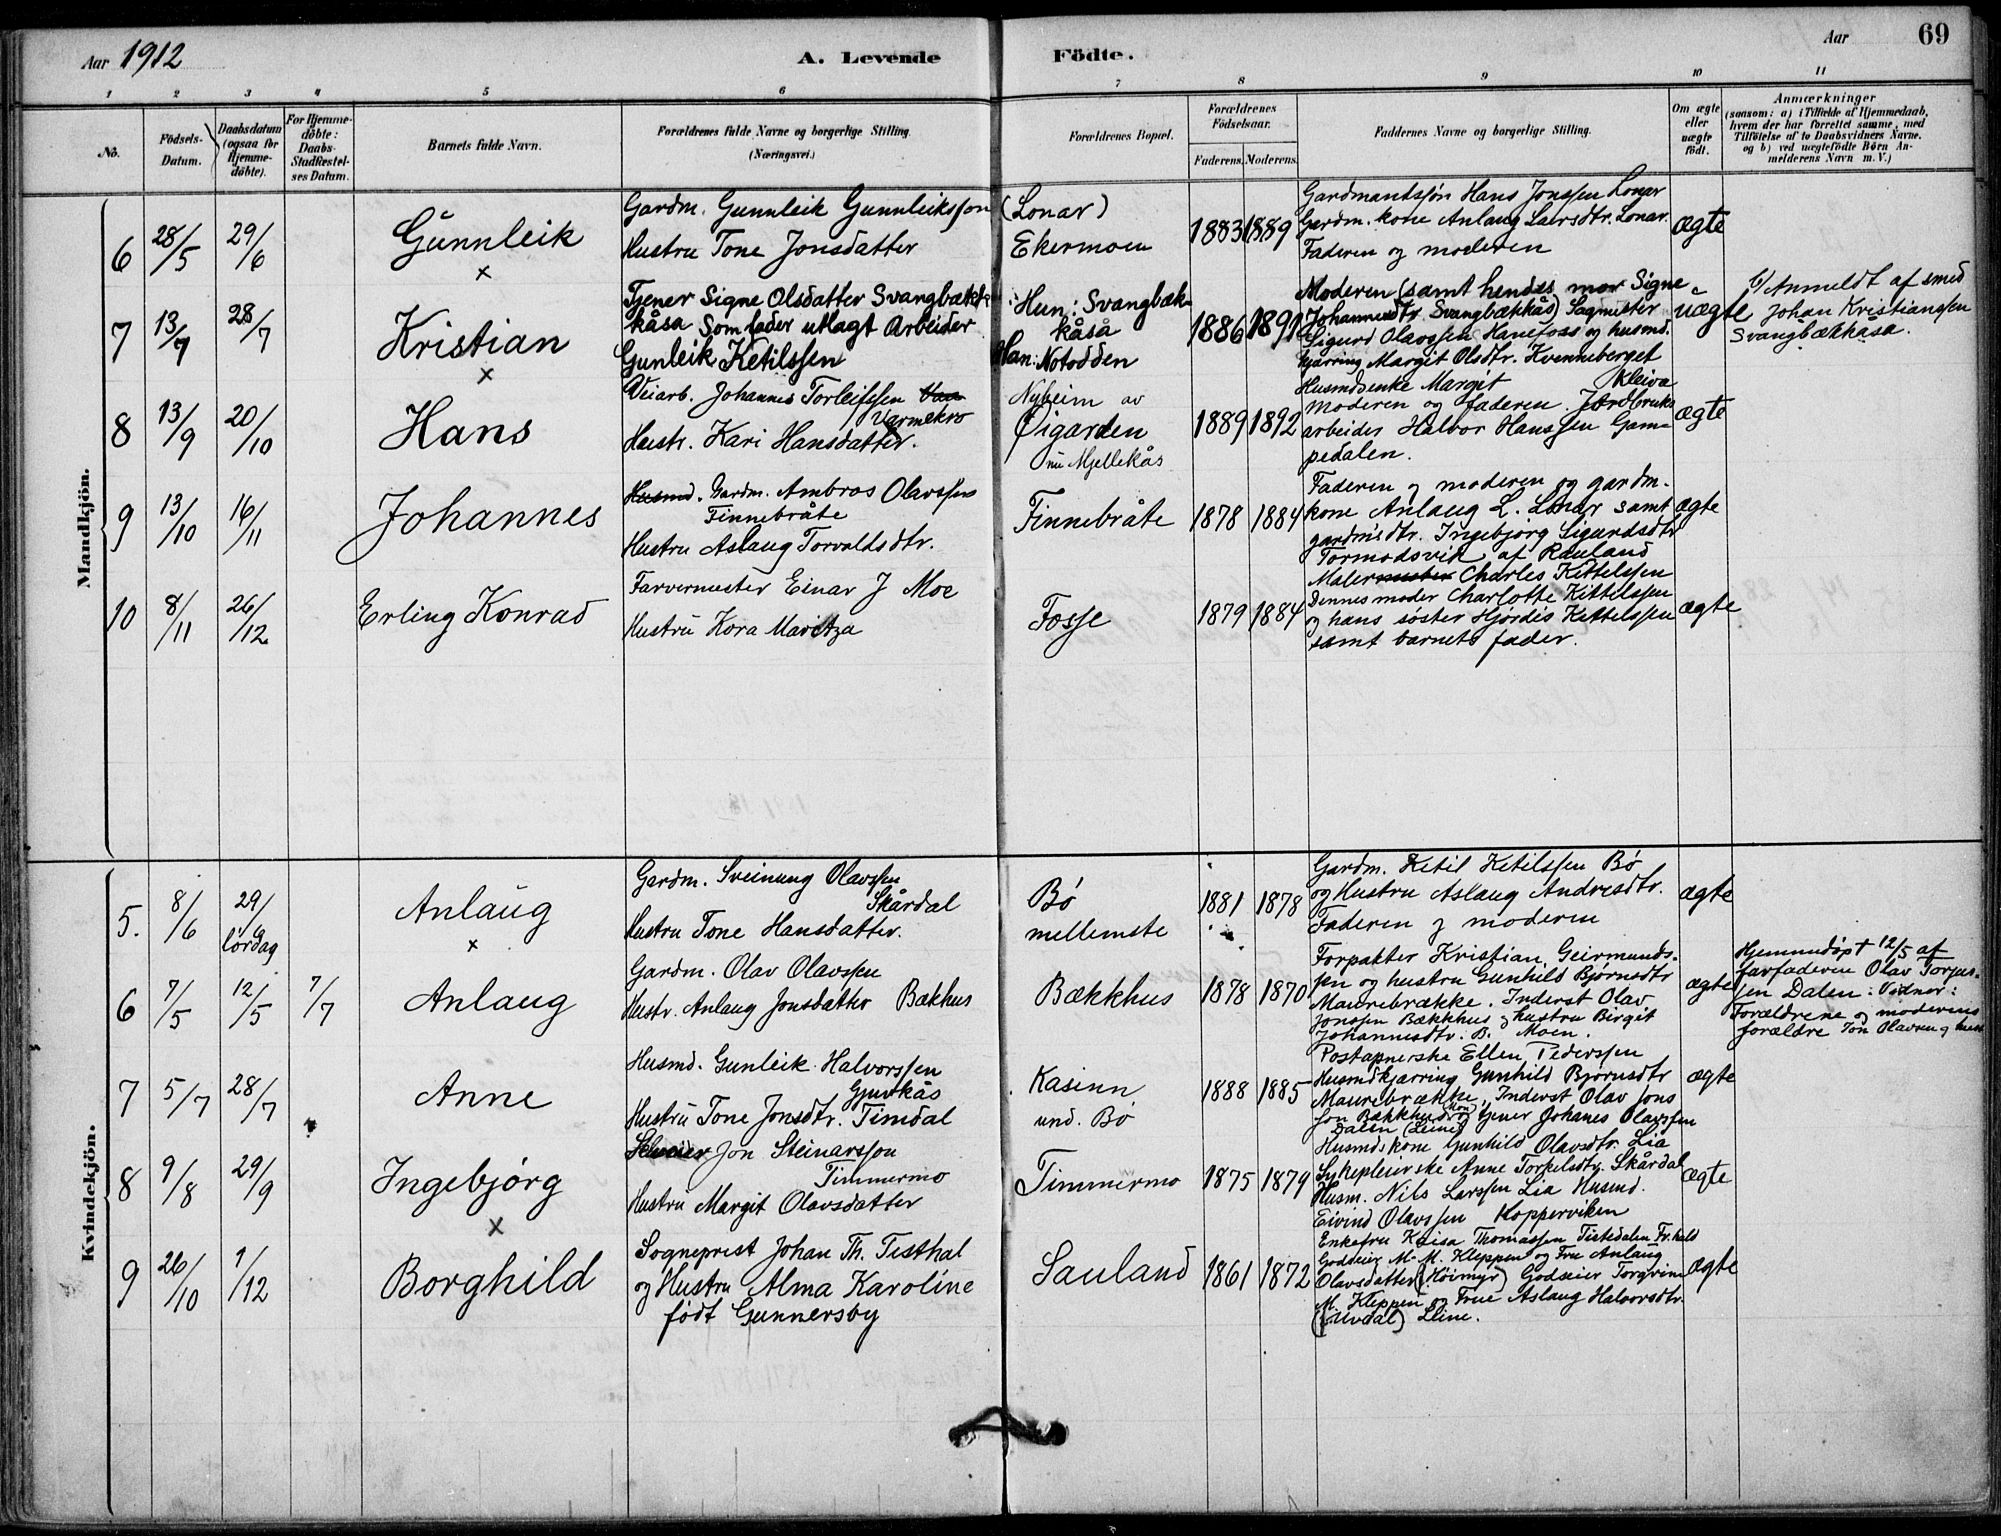 Aar 1912
A. Levende
Födte.
Aar
69
1 2 3 4 5 6 7 8 9 10 11
No.
Födsels-
Datum.
Daabsdatum
(ogsaa for
Hjemme-
döbte).
For Hjemme-
döbte:
Daabs-
Stadfæstel-
ses Datum.
Barnets fulde Navn.
Forældrenes fulde Navne og borgerlige Stilling.
(Næringsvei.)
Forældrenes Bopæl.
Forældrenes
Födselsaar.
Faderens. Moderens.
Faddernes Navne og borgerlige Stilling.
Om ægte
eller
uægte
födt.
Anmærkninger
(saasom: a) i Tilfælde af Hjemmedaab,
hvem der har forrettet samme, med
Tilföielse af to Daabsvidners Navne.
og b) ved uægtefödte Börn An-
melderens Navn m. V.)
Mandkjön.
6 28/5 29/6
Gunnleik
x
Gardm. Gunnleik Gunnleiksson
Hustru Tone Jonsdatter
(Lonar)
Ekermoen
1883 1889
Gardmandssøn Hans Jonssen Lonar
Gardm. kone Anlaug Lavrsdtr. Lonar.
Faderen og moderen
ægte
7 13/7 28/7
Kristian
x
Tjener Signe Olsdatter Svangbæk-
kåsa Som fader utlagt Arbeider
Gunleik Ketilssen
Hun: Svangbæk-
kåsa
Han: Notodden
1886 1891
Moderen (samt hendes mor Signe
Johannesdtr. Svangbækkås) Sagmester
Sigurd Olavssen Hanefoss og husmd.
kjærring Margit Olsdtr. Kvenneberget
uægte
b/ Anmeldt af smed
Johan Kristianssen
Svangbækkåsa.
8 13/9 20/10
Hans
Veiarb. Johannes Torleifssen
Varmekro
Hustr. Kari Hansdatter.
Nyheim av
Øigarden
nu Mjellekås
1889 1892
Husmdsenke Margit Kleiva
Moderen og faderen. Jordbruks
arbeider Halvor Hanssen Gam-
pedalen.
ægte
9 13/10 16/11
Johannes
Husmd. Gardm. Ambros Olavssen
Finnebråte
Hustru Aslaug Torvaldsdtr.
Finnebråte
1878 1884
Faderen og moderen og gardm-
kone Anlaug L. Lonar samt
gardm'sdtr. Ingebjørg Sigurdsdtr
Tormodsvik af Rauland
ægte
10 8/11 26/12
Erling Konrad
Farvermester Einar J Moe
Hustru Kora Maritza
Fosse
1879 1884
Malermester Charles Kittelssen
Dennes moder Charlotte Kittelssen
og hans søster Hjørdis Kittelssen
samt barnets fader.
ægte
Kvindekjön.
5. 8/6 29/6
lördag
Anlaug
x
Gardm. Sveinung Olavssen
Skårdal
Hustru Tone Hansdatter.
Bø
mellemste
1881 1878
Gardm. Ketil Ketilssen Bø
og Hustru Aslaug Andresdtr.
Faderen og moderen
ægte
6 7/5 12/5 7/7
Anlaug
Gardm. Olav Olavssen
Hustr. Anlaug Jonsdatter Bækhus
Bækkhus
1878 1870
Forpakter Kristian Geirmunds-
sen og hustru Gunhild Bjørnsdtr
Maurebrække. Inderst Olav
Jonssen Bækkhus og hustru Birgit
Johannesdtr. B. Moen.
ægte
Hjemmedøpt 12/5 af
farfaderen Olav Torjus-
sen Dalen. Vidner:
Forældrene og moderens
forældre Jon Olavsen og hust
7 5/7 28/7
Anne
Husmd. Gunleik Halvorssen
Gjuvkås
Hustru Tone Jonsdtr. Timdal
Kasinn
und. Bø
1888 1885
Postapnerske Ellen Pederssen
Husmdkjærring Gunhild Bjørnsdtr
Maurebrække, Inderst Olav Jons
son Bækkhus og tjener Johanes Olavssen
Dalen
ægte
8 9/8 29/9
Ingebjørg
x
Jon Steinarsson
Timmermo
Hustru Margit Olavsdatter
Timmermo
1875 1879
Husmdskone Gunhild Olavsdtr. Lia
Sykepleierske Anne Torkelsdtr. Skårdal
Husm. Nils Larssen Lia Husmd.
Eivind Olavssen Kopperviken
ægte
9 26/10 1/12
Borghild
Sogneprest Johan Th. Tisthal
og Hustru Alma Karoline
født Gunnersby
Sauland
1861 1872
Enkefru Kaisa Thomassen Tistedalen Fr.hald
Godseier M. M. Kleppen og Fru Anlaug
Olavsdatter (Høimyr) Godseier Torgrim
M. Kleppen og Frue Aslaug Halvorsdtr.
Leine.
ægte